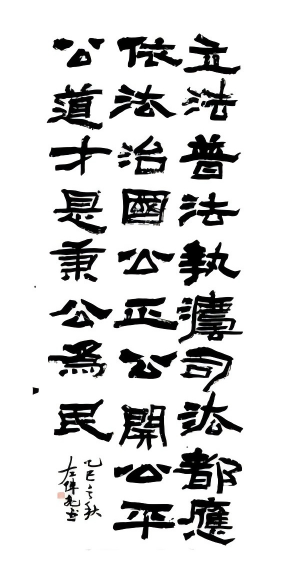 立法普法執灋司法都應
依法治國公正公開公平
公道才是秉公為民
乙巳秋
左偉書